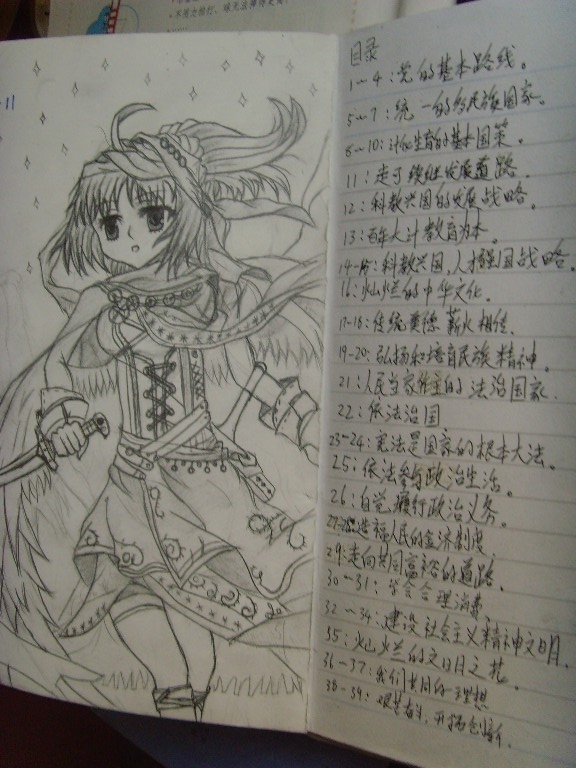 -11
目录
1~4：党的基本路线。
5~7：统一的多民族国家。
8~10：计划生育的基本国策。
11：走可持续发展道路。
12：科教兴国的发展战略。
13：百年大计教育为本。
14~15：科教兴国，人才强国战略。
16：灿烂的中华文化。
17~18：传统美德 薪火相传。
19~20：弘扬和培育民族精神。
21：人民当家作主的法治国家。
22：依法治国
23~24：宪法是国家的根本大法。
25：依法参与政治生活。
26：自觉履行政治义务。
造福人民的经济制度
29：走向共同富裕的道路。
30~31：学会合理消费。
32~34：建设社会主义精神文明。
35：灿烂的文明之花。
36~37：我们共同的理想
38~39：艰苦奋斗，开拓创新。